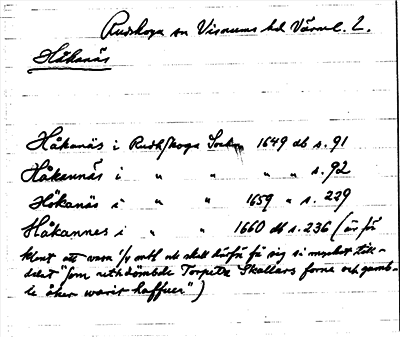 Rudskoga sn Visnums hd Värml. L.
Håkanäs
Håkanäs i Rudhskoga Sockn 1649 db s. 91
Håkannäs i " " " " s. 92
Håkanäs i " " 1659 " s. 239
Håkannes i " " 1660 db s. 236 (är på
klent att wara 1/4 mtl och skall därför få sig så mycket till-
delat "som
Torpetz Skallars forne och gamb-
le åker warit haffuer")